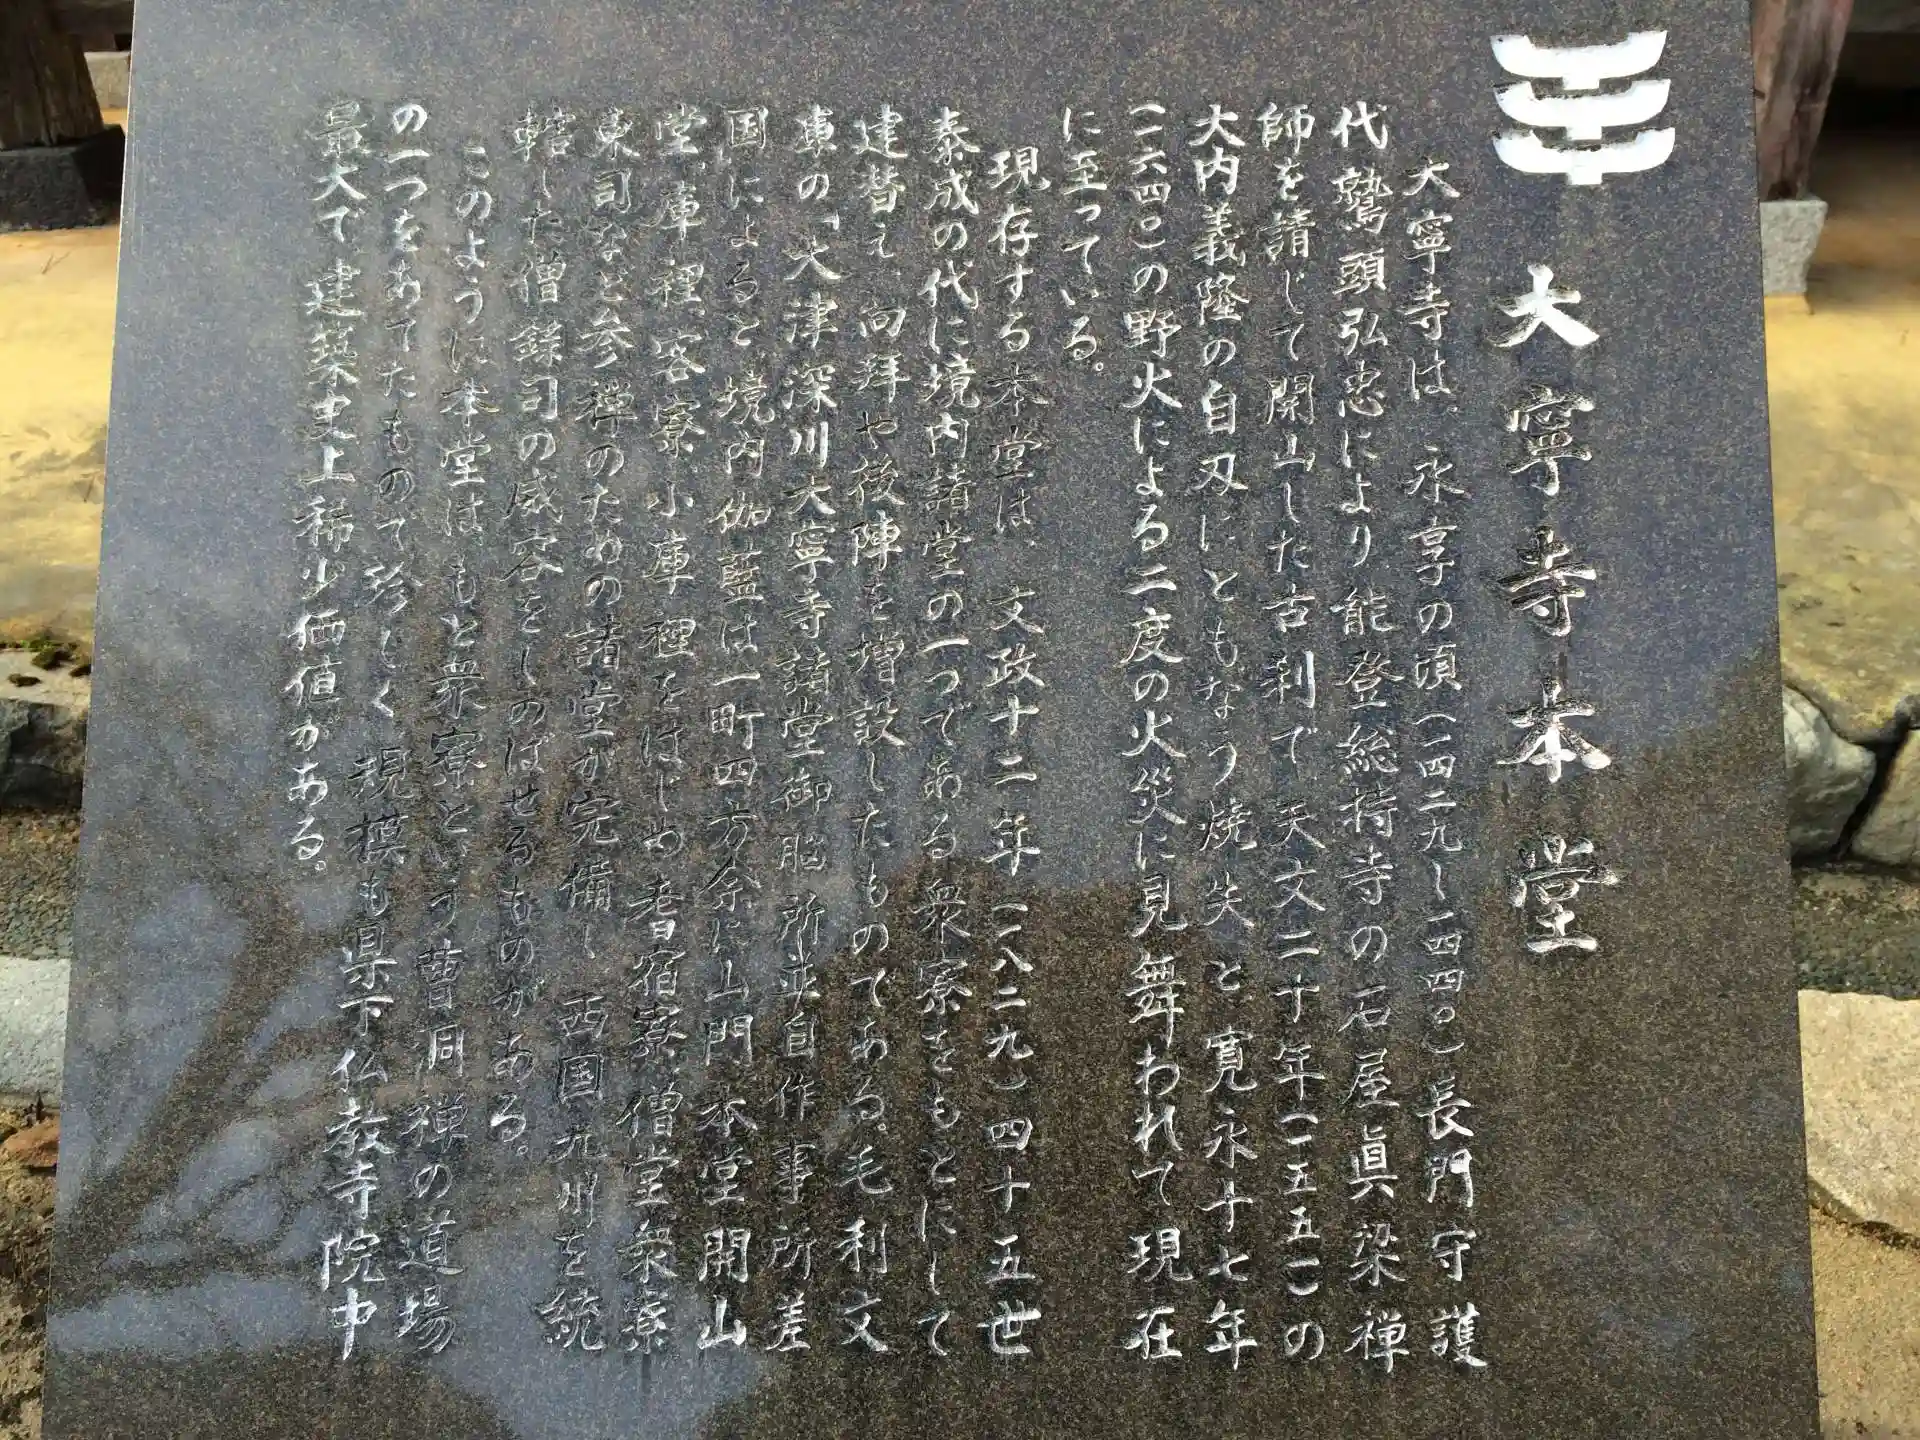 大寧寺本堂
大寧寺は、永享の頃(一四二九〜一四四〇)長門守護
代鷲頭弘忠により能登総持寺の石屋眞梁禅
師を請じて開山した古刹で天文二十年(一五五一)の
大内義隆の自刃にともなう焼失と寛永十七年
(一六四〇)の野火による二度の火災に見舞われて現在
に至っている。
現存する本堂は、文政十二年(一八二九)四十五世
泰成の代に境内諸堂の一つである衆寮をもとにして
建替え、向拜や後陣を増設したものである。毛利文
庫の「大津深川大寧寺諸堂御脳所並自作事所差
図」によると、境内伽藍は一町四方余に山門本堂開山
堂、庫裡、客寮、小庫裡をはじめ耆宿寮、僧堂衆寮
東司など参禅のための諸堂が完備し、西国九州を統
轄した僧録司の威容をしのばせるものがある。
このように本堂は、もと衆寮という曹洞禅の道場
の一つをあてたもので珍しく、規模も県下仏教寺院中
最大で建築史上稀少価値がある。